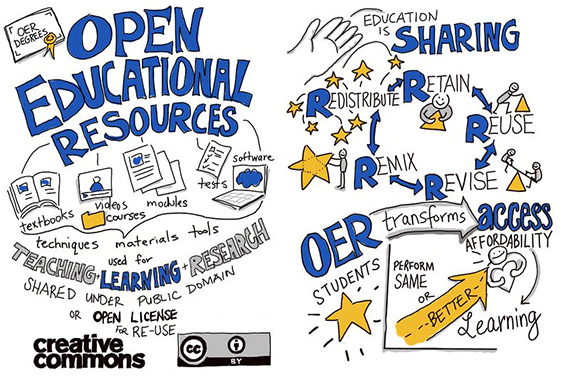 OER
DEGREES
OPEN
EDUCATIONAL
RESOURCES
textbooks
videos
courses
modules
tests
software
techniques materials tools
used for
TEACHING + LEARNING + RESEARCH
SHARED UNDER PUBLIC DOMAIN
OR OPEN LICENSE
FOR RE-USE
creative
commons
cc
BY
EDUCATION
IS SHARING
REDISTRIBUTE
RETAIN
REUSE
REVISE
REMIX
OER transforms access
AFFORDABILITY
STUDENTS
PERFORM
SAME
OR
BETTER
Learning